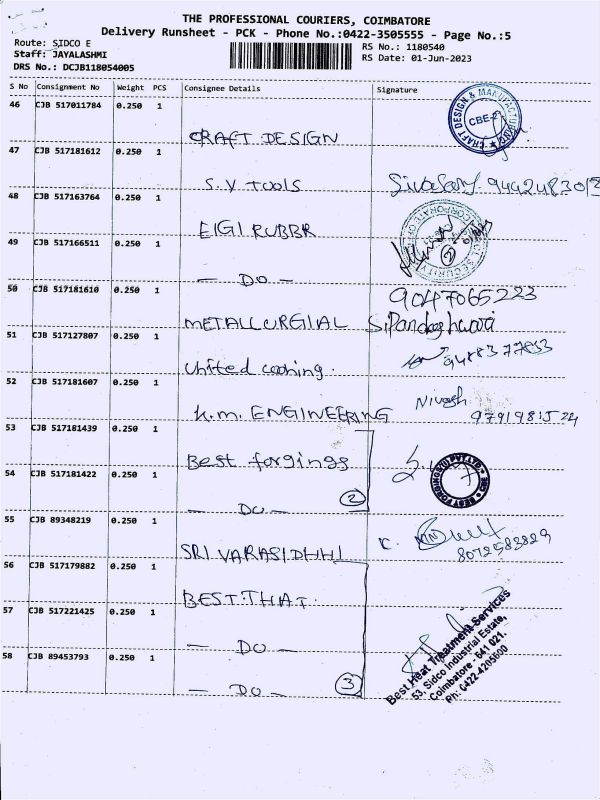 THE PROFESSIONAL COURIERS, COIMBATORE
Delivery Runsheet - PCK - Phone No.:0422-3505555 - Page No.:5
Route: SIDCO E
RS No.: 1180540
Staff: JAYALASHMI
RS Date: 01-Jun-2023
DRS No.: DCJB118054005
S No Consignment No Weight PCS Consignee Details Signature
46 CJB 517011784 0.250 1
CRAFT DESIGN
CRAFT DESIGN & MANUFACTURING
CBE
47 CJB 517181612 0.250 1
S.V TOOLS
48 CJB 517163764 0.250 1
EIGI RUBBR
49 CJB 517166511 0.250 1
— DO —
50 CJB 517181610 0.250 1
9047065223
METALLURGIAL
51 CJB 517127807 0.250 1
United coating.
52 CJB 517181607 0.250 1
K.M. ENGINEERING
53 CJB 517181439 0.250 1
Best forgings
54 CJB 517181422 0.250 1
— DO — 2
55 CJB 89348219 0.250 1
SRI VARASIDHHI
8012583829
56 CJB 517179882 0.250 1
BEST.THAT.
57 CJB 517221425 0.250 1
— DO —
58 CJB 89453793 0.250 1
— DO — 3
Best Heat Treatment Services
53, Sidco Industrial Estate,
Coimbatore - 641 021.
Ph: 0422-4205600